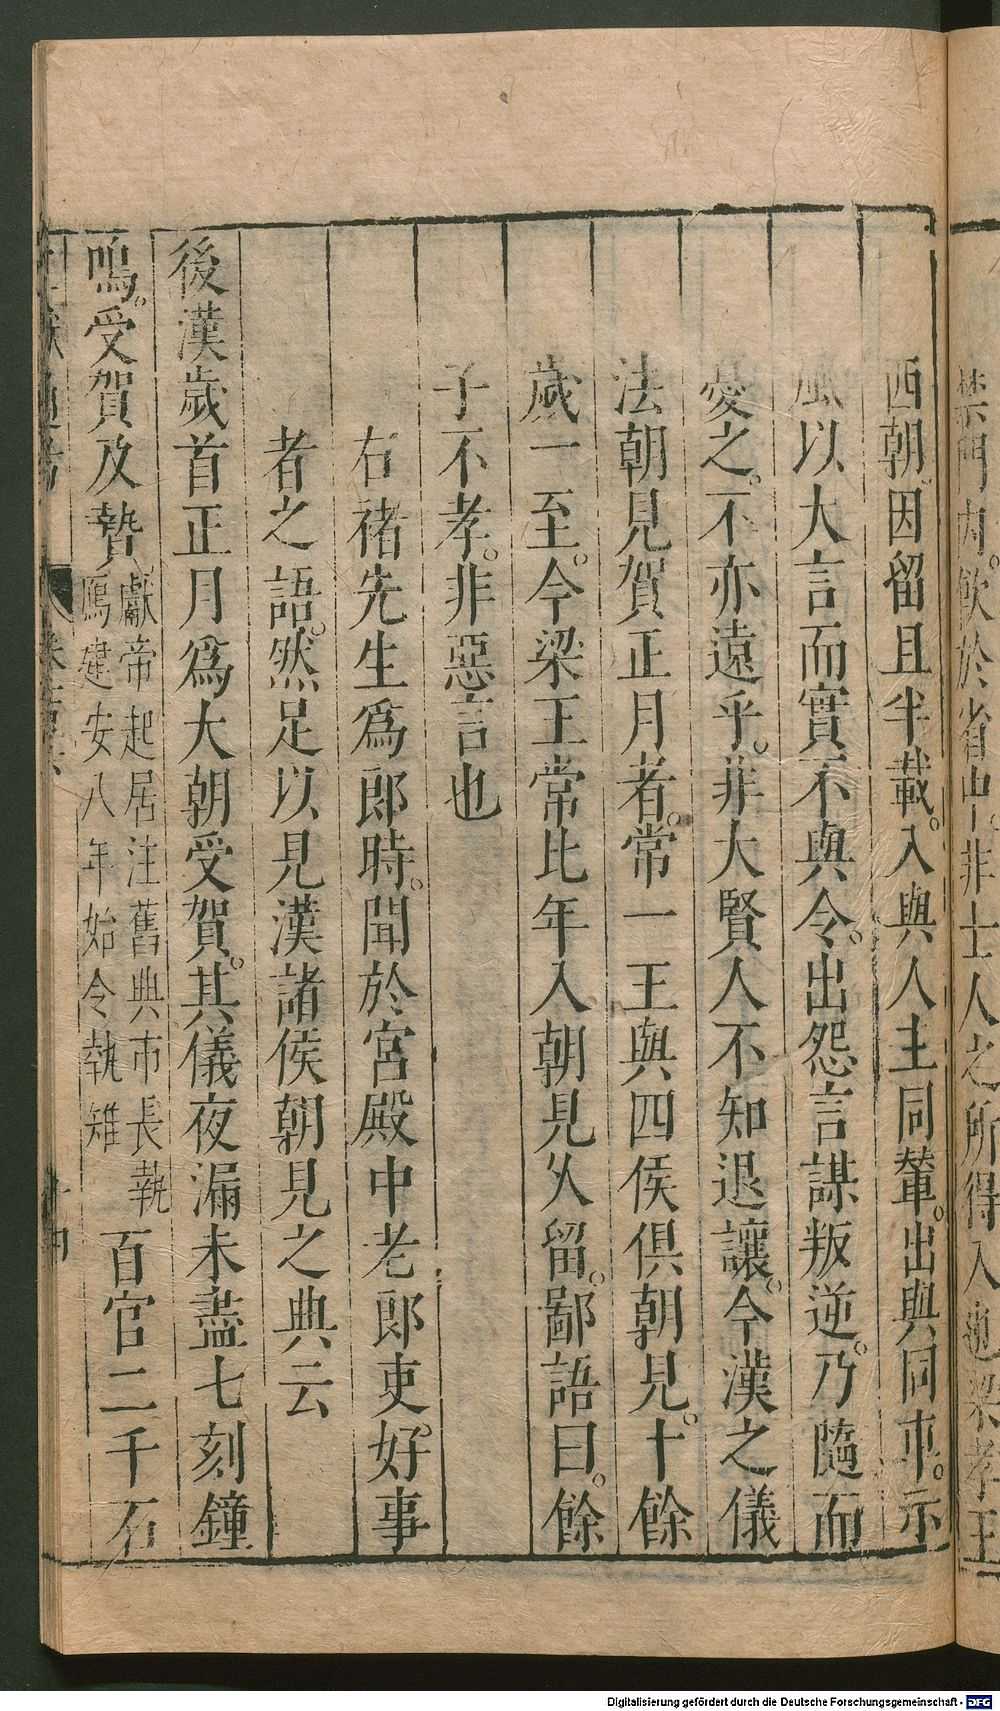 禁門內。飲於省中。非士人之所得入也。梁孝王
西朝因留且半載。入與人主同輦。出與同車。示
風以大言而實不與。令出怨言謀叛逆。乃隨而
憂之。不亦遠乎。非大賢人不知退讓。今漢之儀
法朝見賀正月者。常一王與四侯俱朝見。十餘
歲一至。今梁王常比年入朝見久留。鄙語曰。餘
子不孝。非惡言也
右禇先生爲郎時。聞於宮殿中老郎吏好事
者之語。然足以見漢諸侯朝見之典云
後漢歲首正月爲大朝受賀。其儀夜漏未盡七刻鐘
鳴。受賀及贄 獻帝起居注舊典市長執鴈建安八年始令執雉 百官二千石
Digitalisierung gefördert durch die Deutsche Forschungsgemeinschaft - DFG